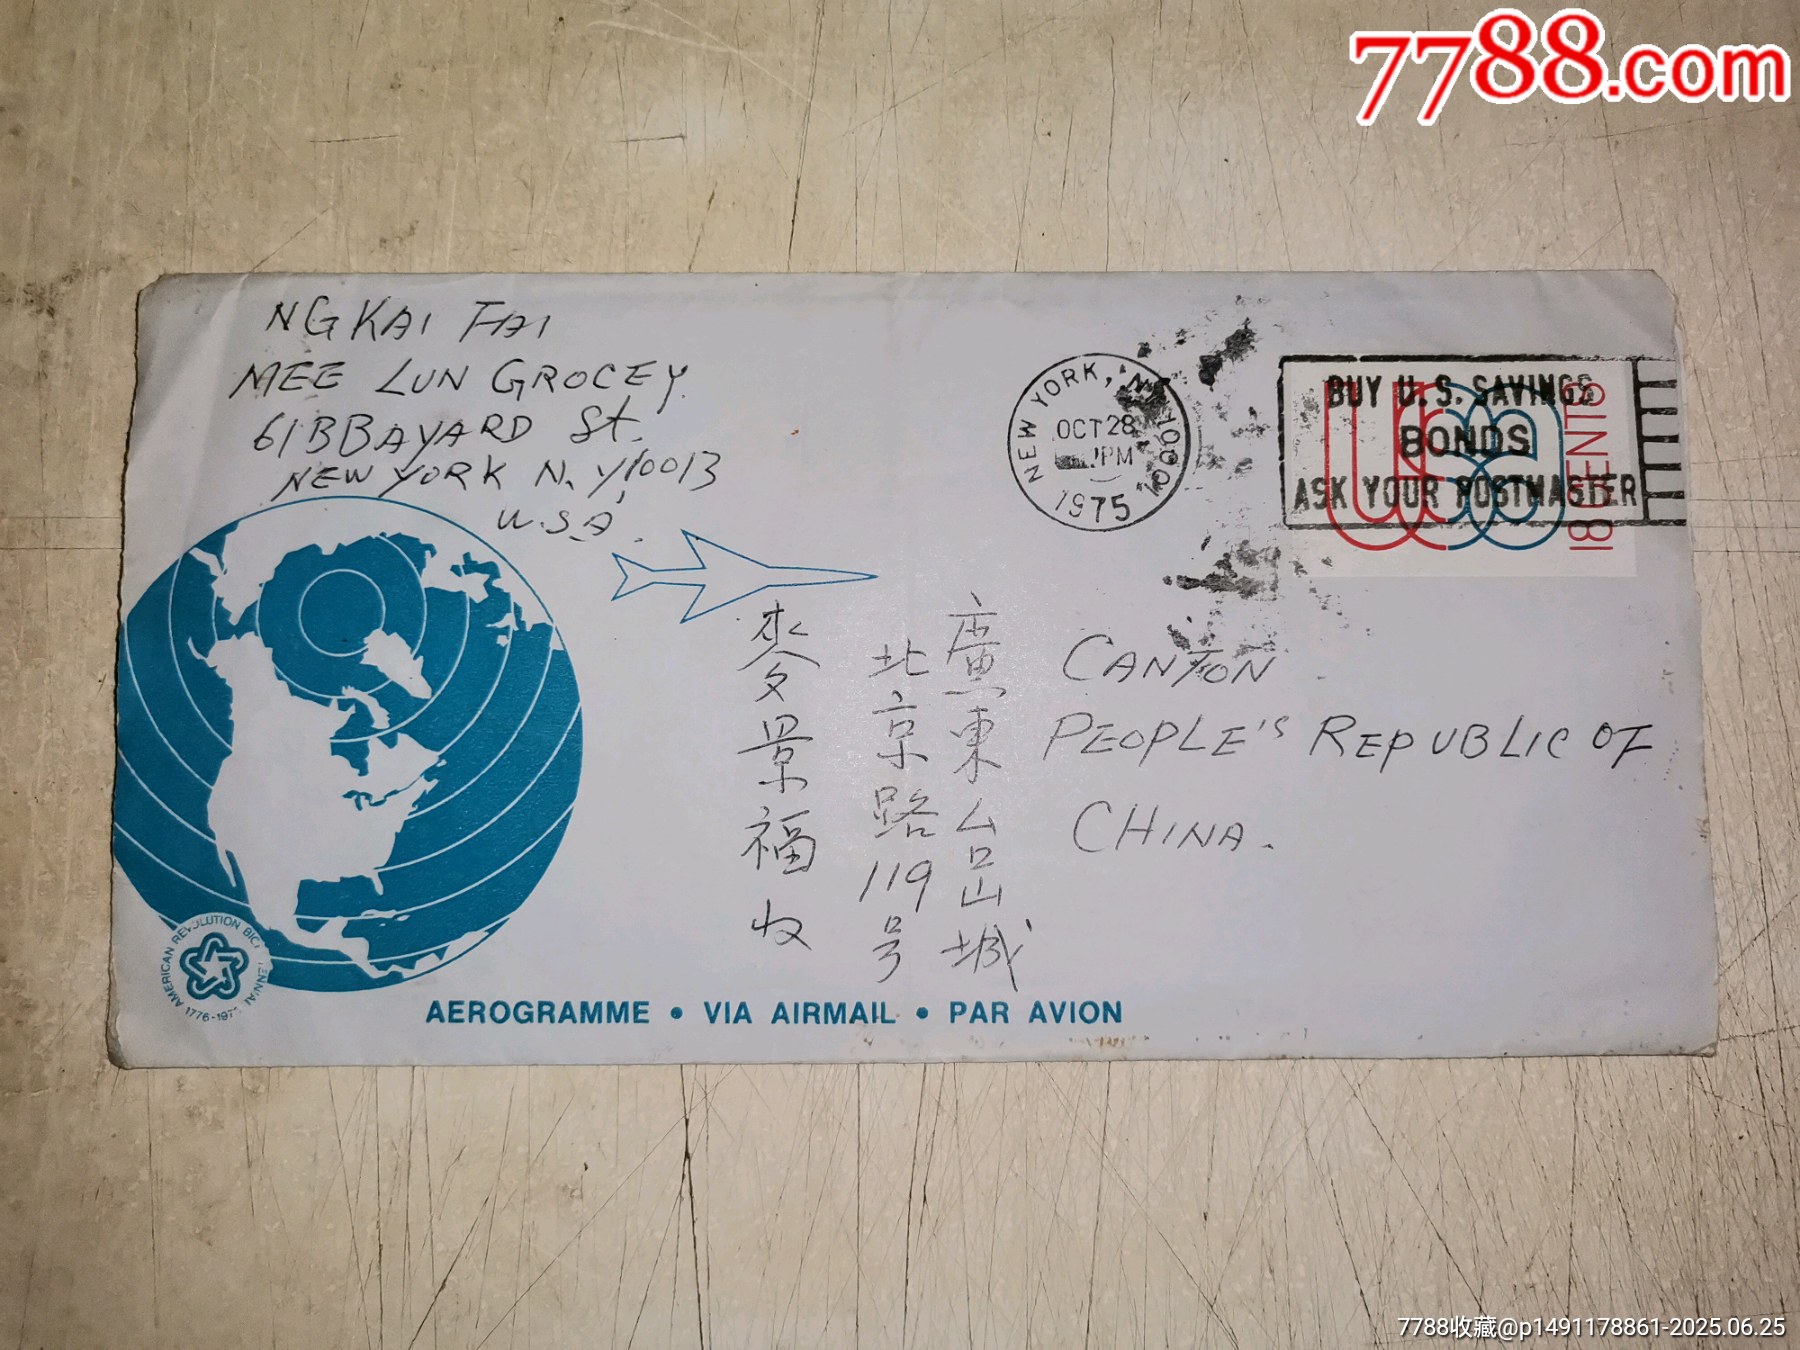 7788.com
NG KAI FAI
MEE LUN GROCEY.
61B BAYARD St.
NEW YORK N.Y, 10013
U.S.A.
NEW YORK, N.Y. 10001
OCT 28
PM
1975
BUY U.S. SAVINGS
BONDS
ASK YOUR POSTMASTER
USA
18 CENTS
CANTON
PEOPLE'S REPUBLIC OF
CHINA.
廣東台山城
北京路119号
麥景福收
AMERICAN REVOLUTION BICENTENNIAL
1776-1976
AEROGRAMME • VIA AIRMAIL • PAR AVION
7788收藏@p1491178861-2025.06.25